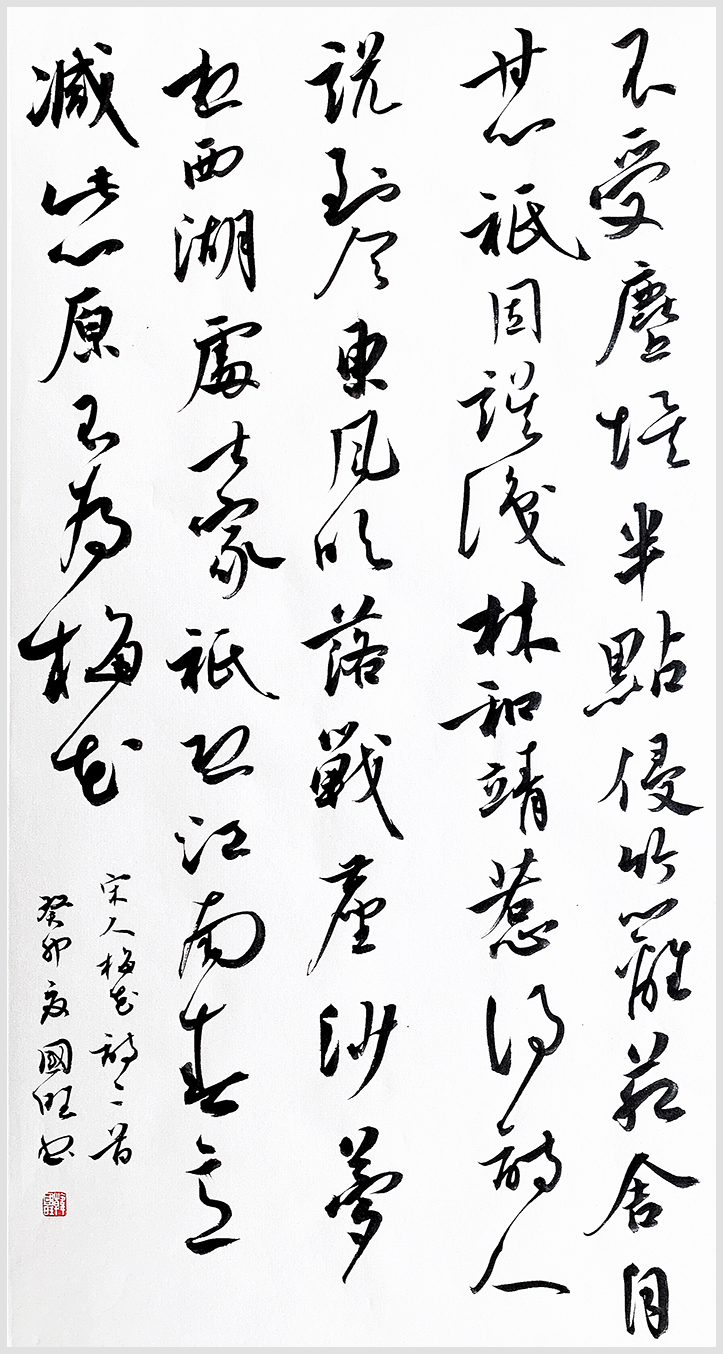 不受塵埃半點侵竹籬茅舍自
甘心祗因誤識林和靖惹得詩人
說到今東風吹落戰塵沙夢
想西湖處士家祗恐江南春意
減此心原不為梅花
宋人梅花詩二首
癸卯夏國旺書